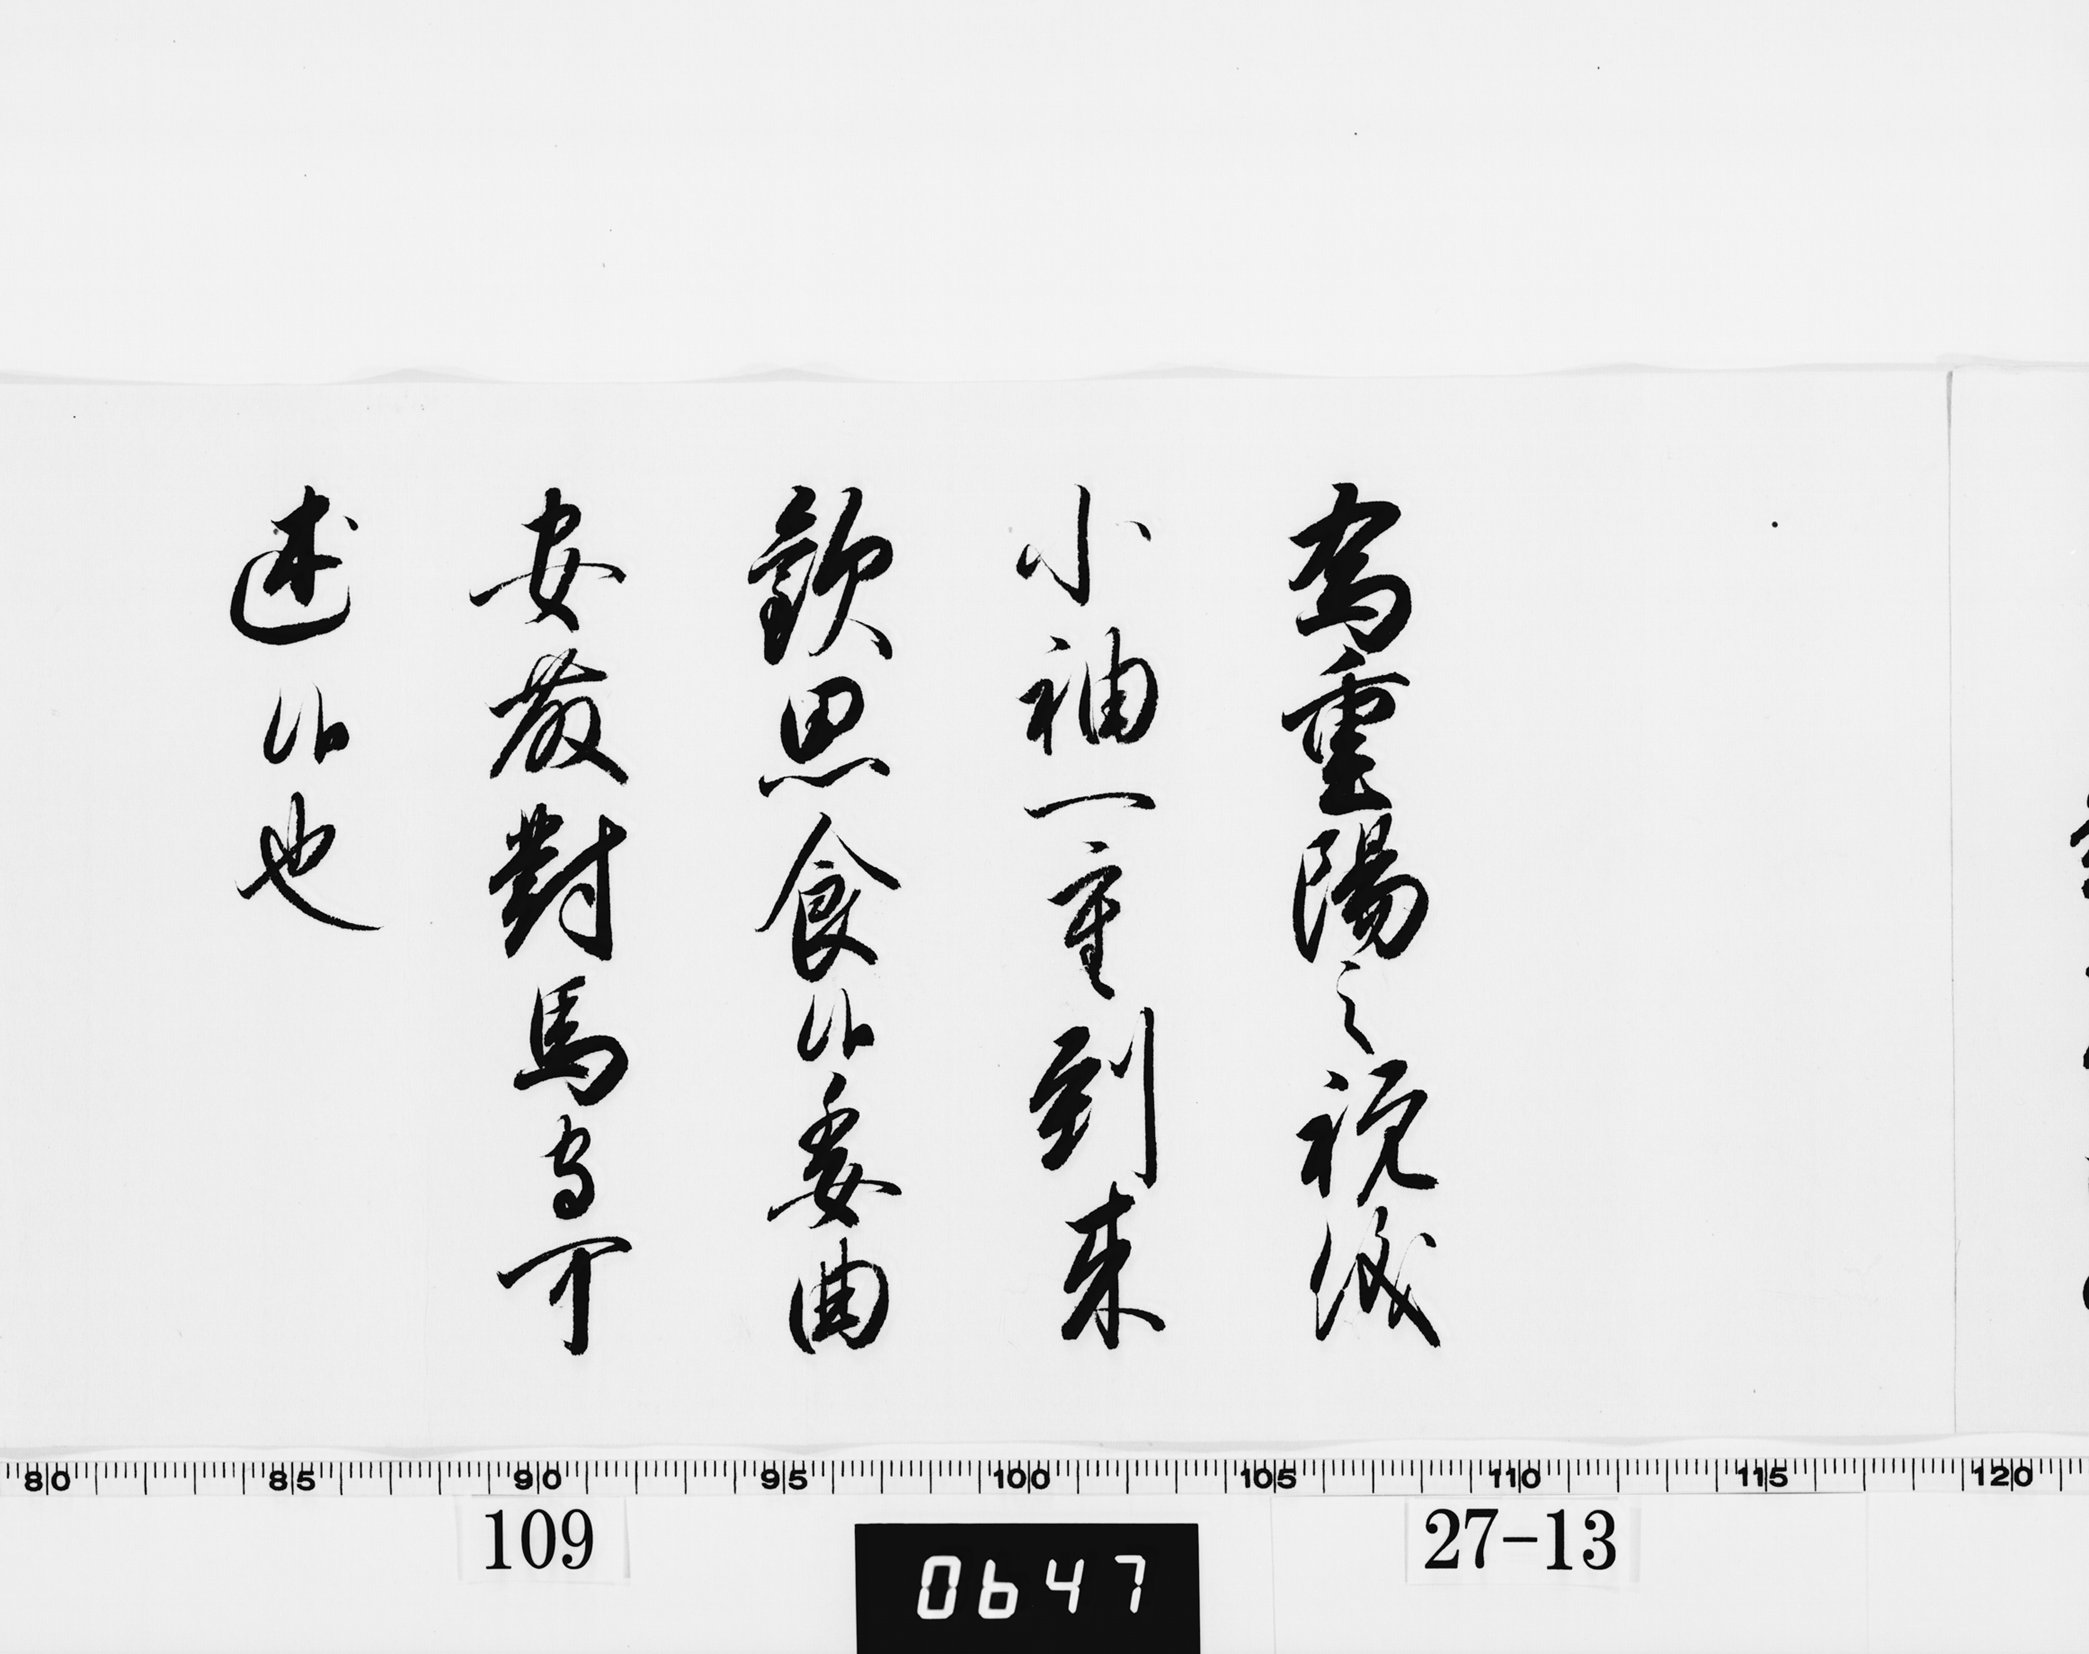 為重陽之祝儀
小袖一重到来
歓思食候委曲
安藤對馬守可
述候也
80 85 90 95 100 105 110 115 120
109
0647
27-13